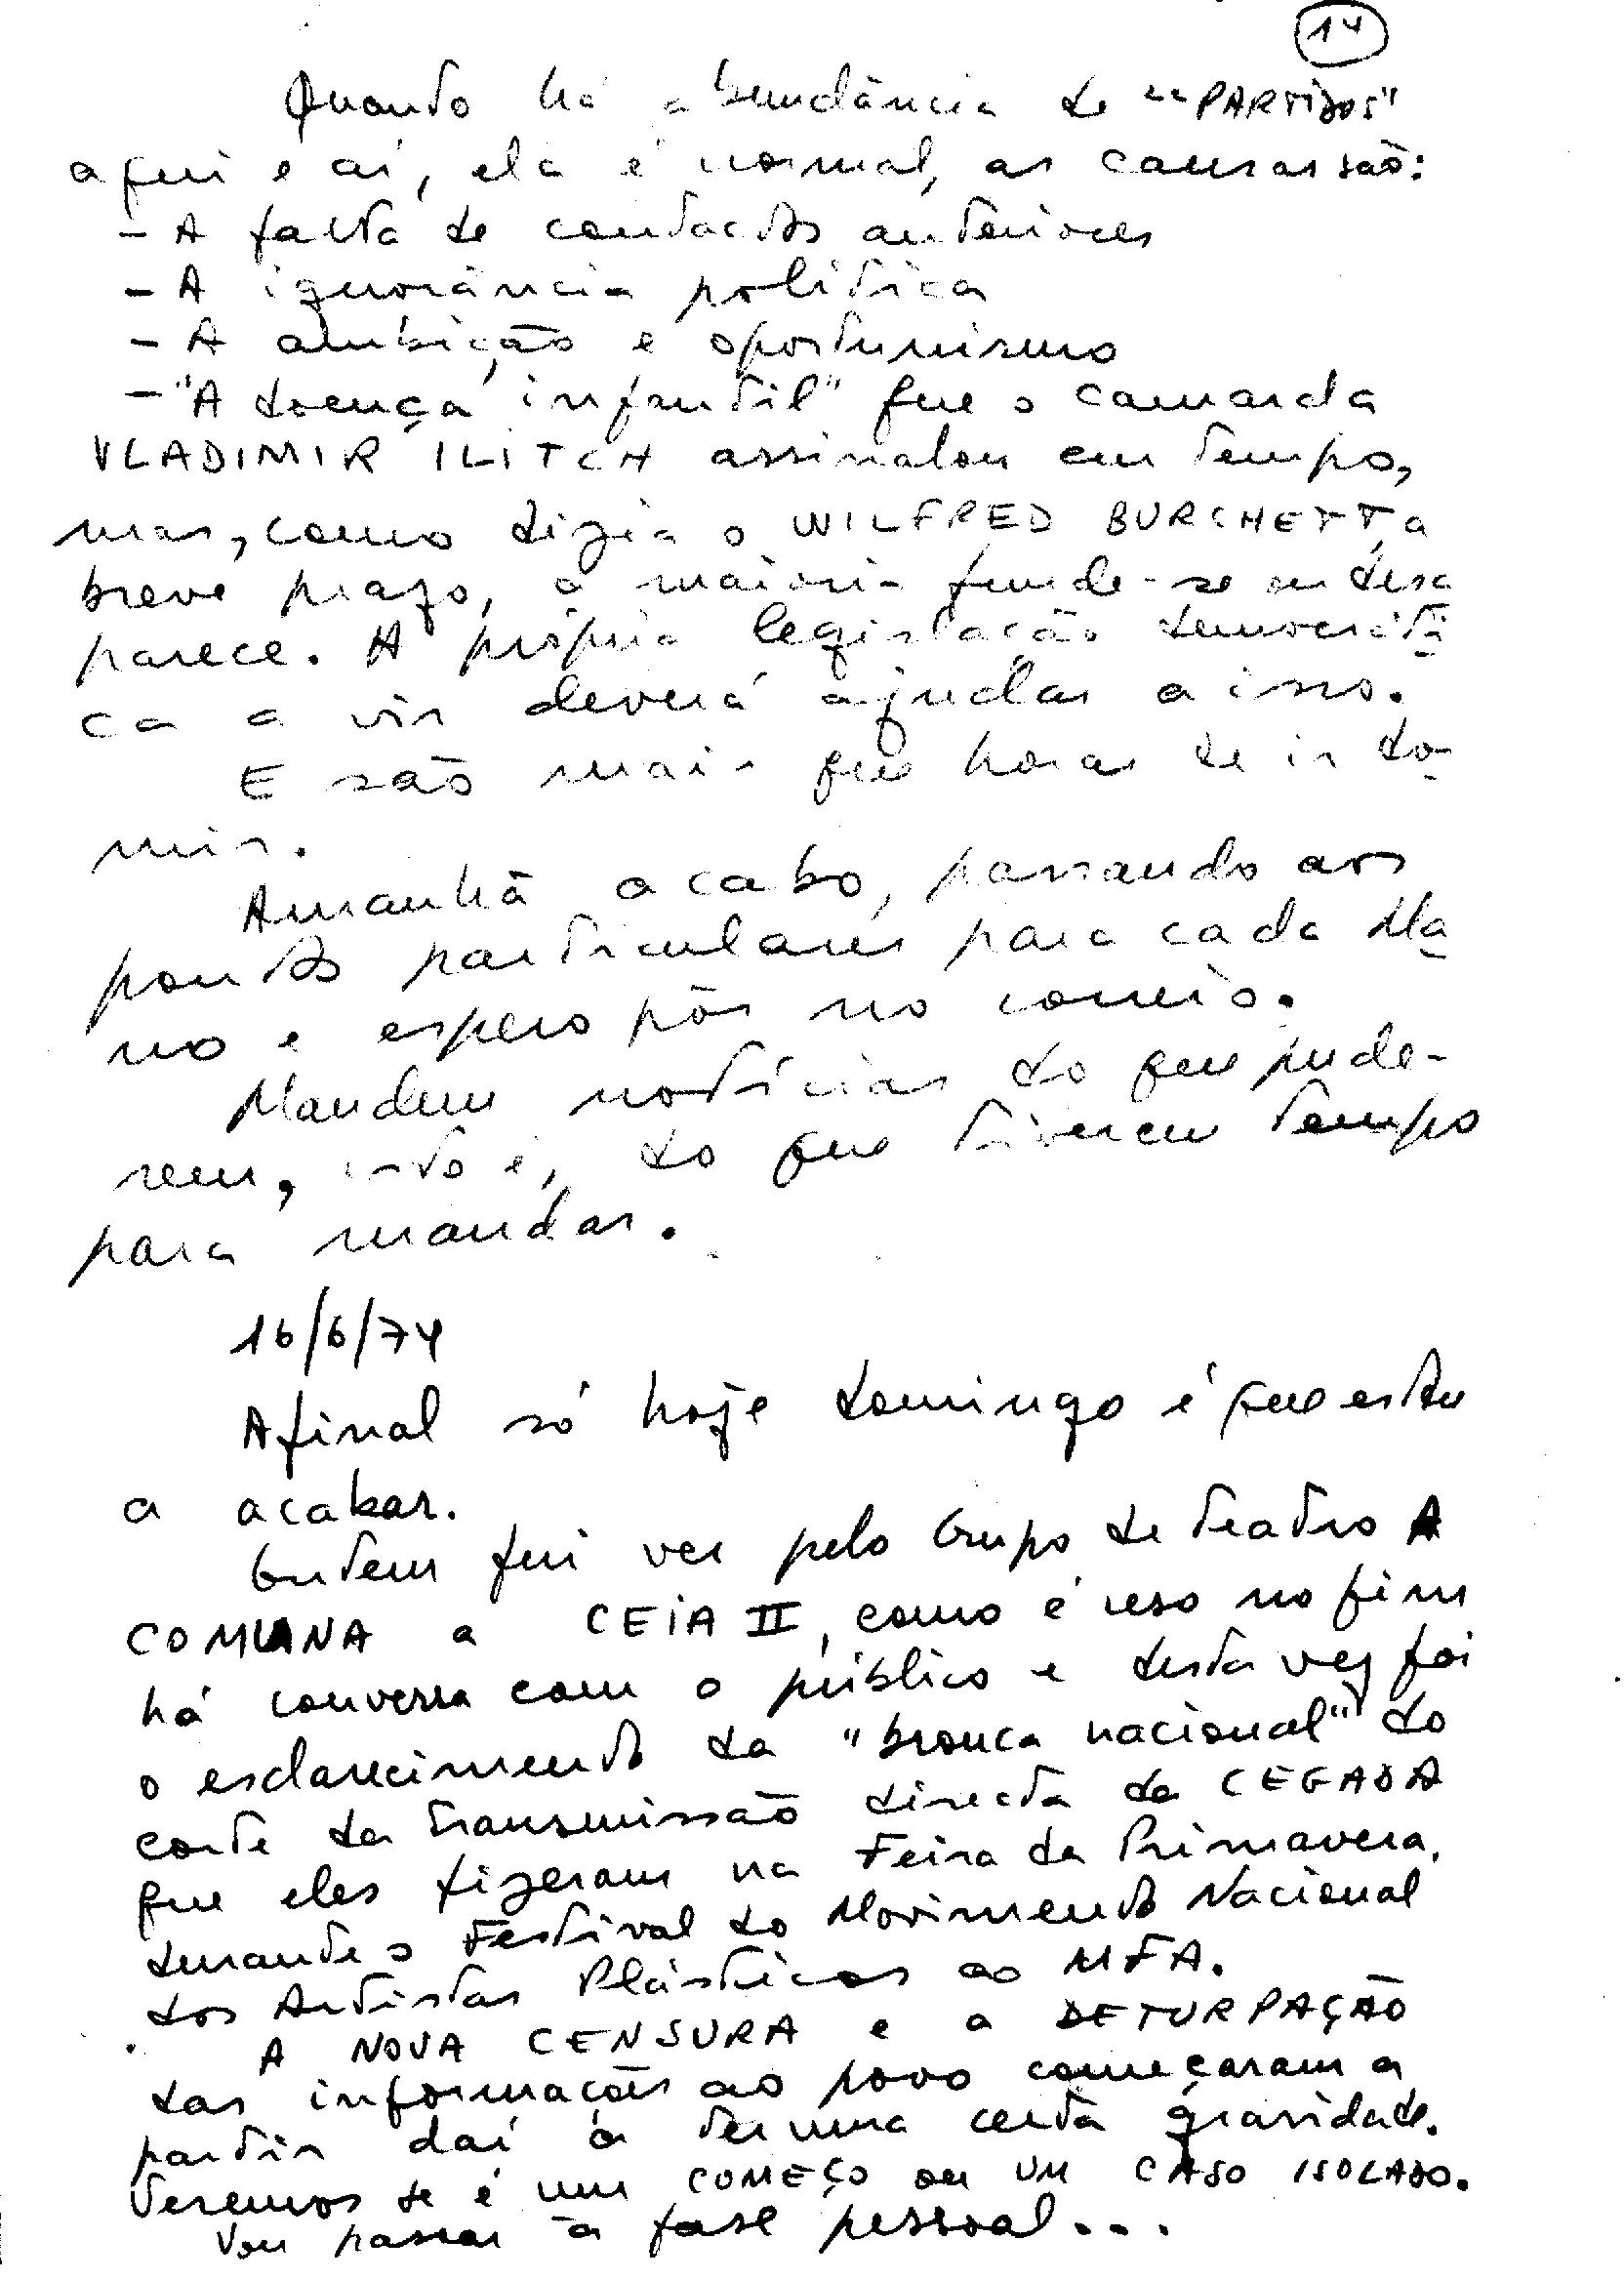 14
Quando há abundância de "PARTIDOS"
aqui e aí, ela é normal, as causas são:
- A falta de contactos anteriores
- A ignorância política
- A ambição e oportunismo
- "A doença infantil" que o camarada
VLADIMIR ILITCH assinalou em tempo,
mas, como dizia o WILFRED BURCHETT, a
breve prazo, a maioria funde-se ou desa
parece. A própria legislação democráti
ca a vir deverá ajudar a isso.
E são mais que horas de ir do-
mir.
Amanhã acabo, passando aos
pontos particulares para cada Ma
no e espero pôr no correio.
Mandem notícias do que pude-
rem, isto é, do que tiverem tempo
para mandar.
16/6/74
Afinal só hoje domingo é que estou
a acabar.
Ontem fui ver pelo Grupo de Teatro A
COMUNA a CEIA II, como é uso no fim
há conversa com o público e desta vez foi
o esclarecimento da "bronca nacional" do
corte da transmissão directa da CEGADA
que eles fizeram na Feira da Primavera,
durante o Festival do Movimento Nacional
dos Artistas Plásticos ao MFA.
A NOVA CENSURA e a DETURPAÇÃO
das informações ao povo começaram a
partir daí a ter uma certa gravidade.
Veremos se é um COMEÇO ou UM CASO ISOLADO.
Vou passar à fase pessoal...